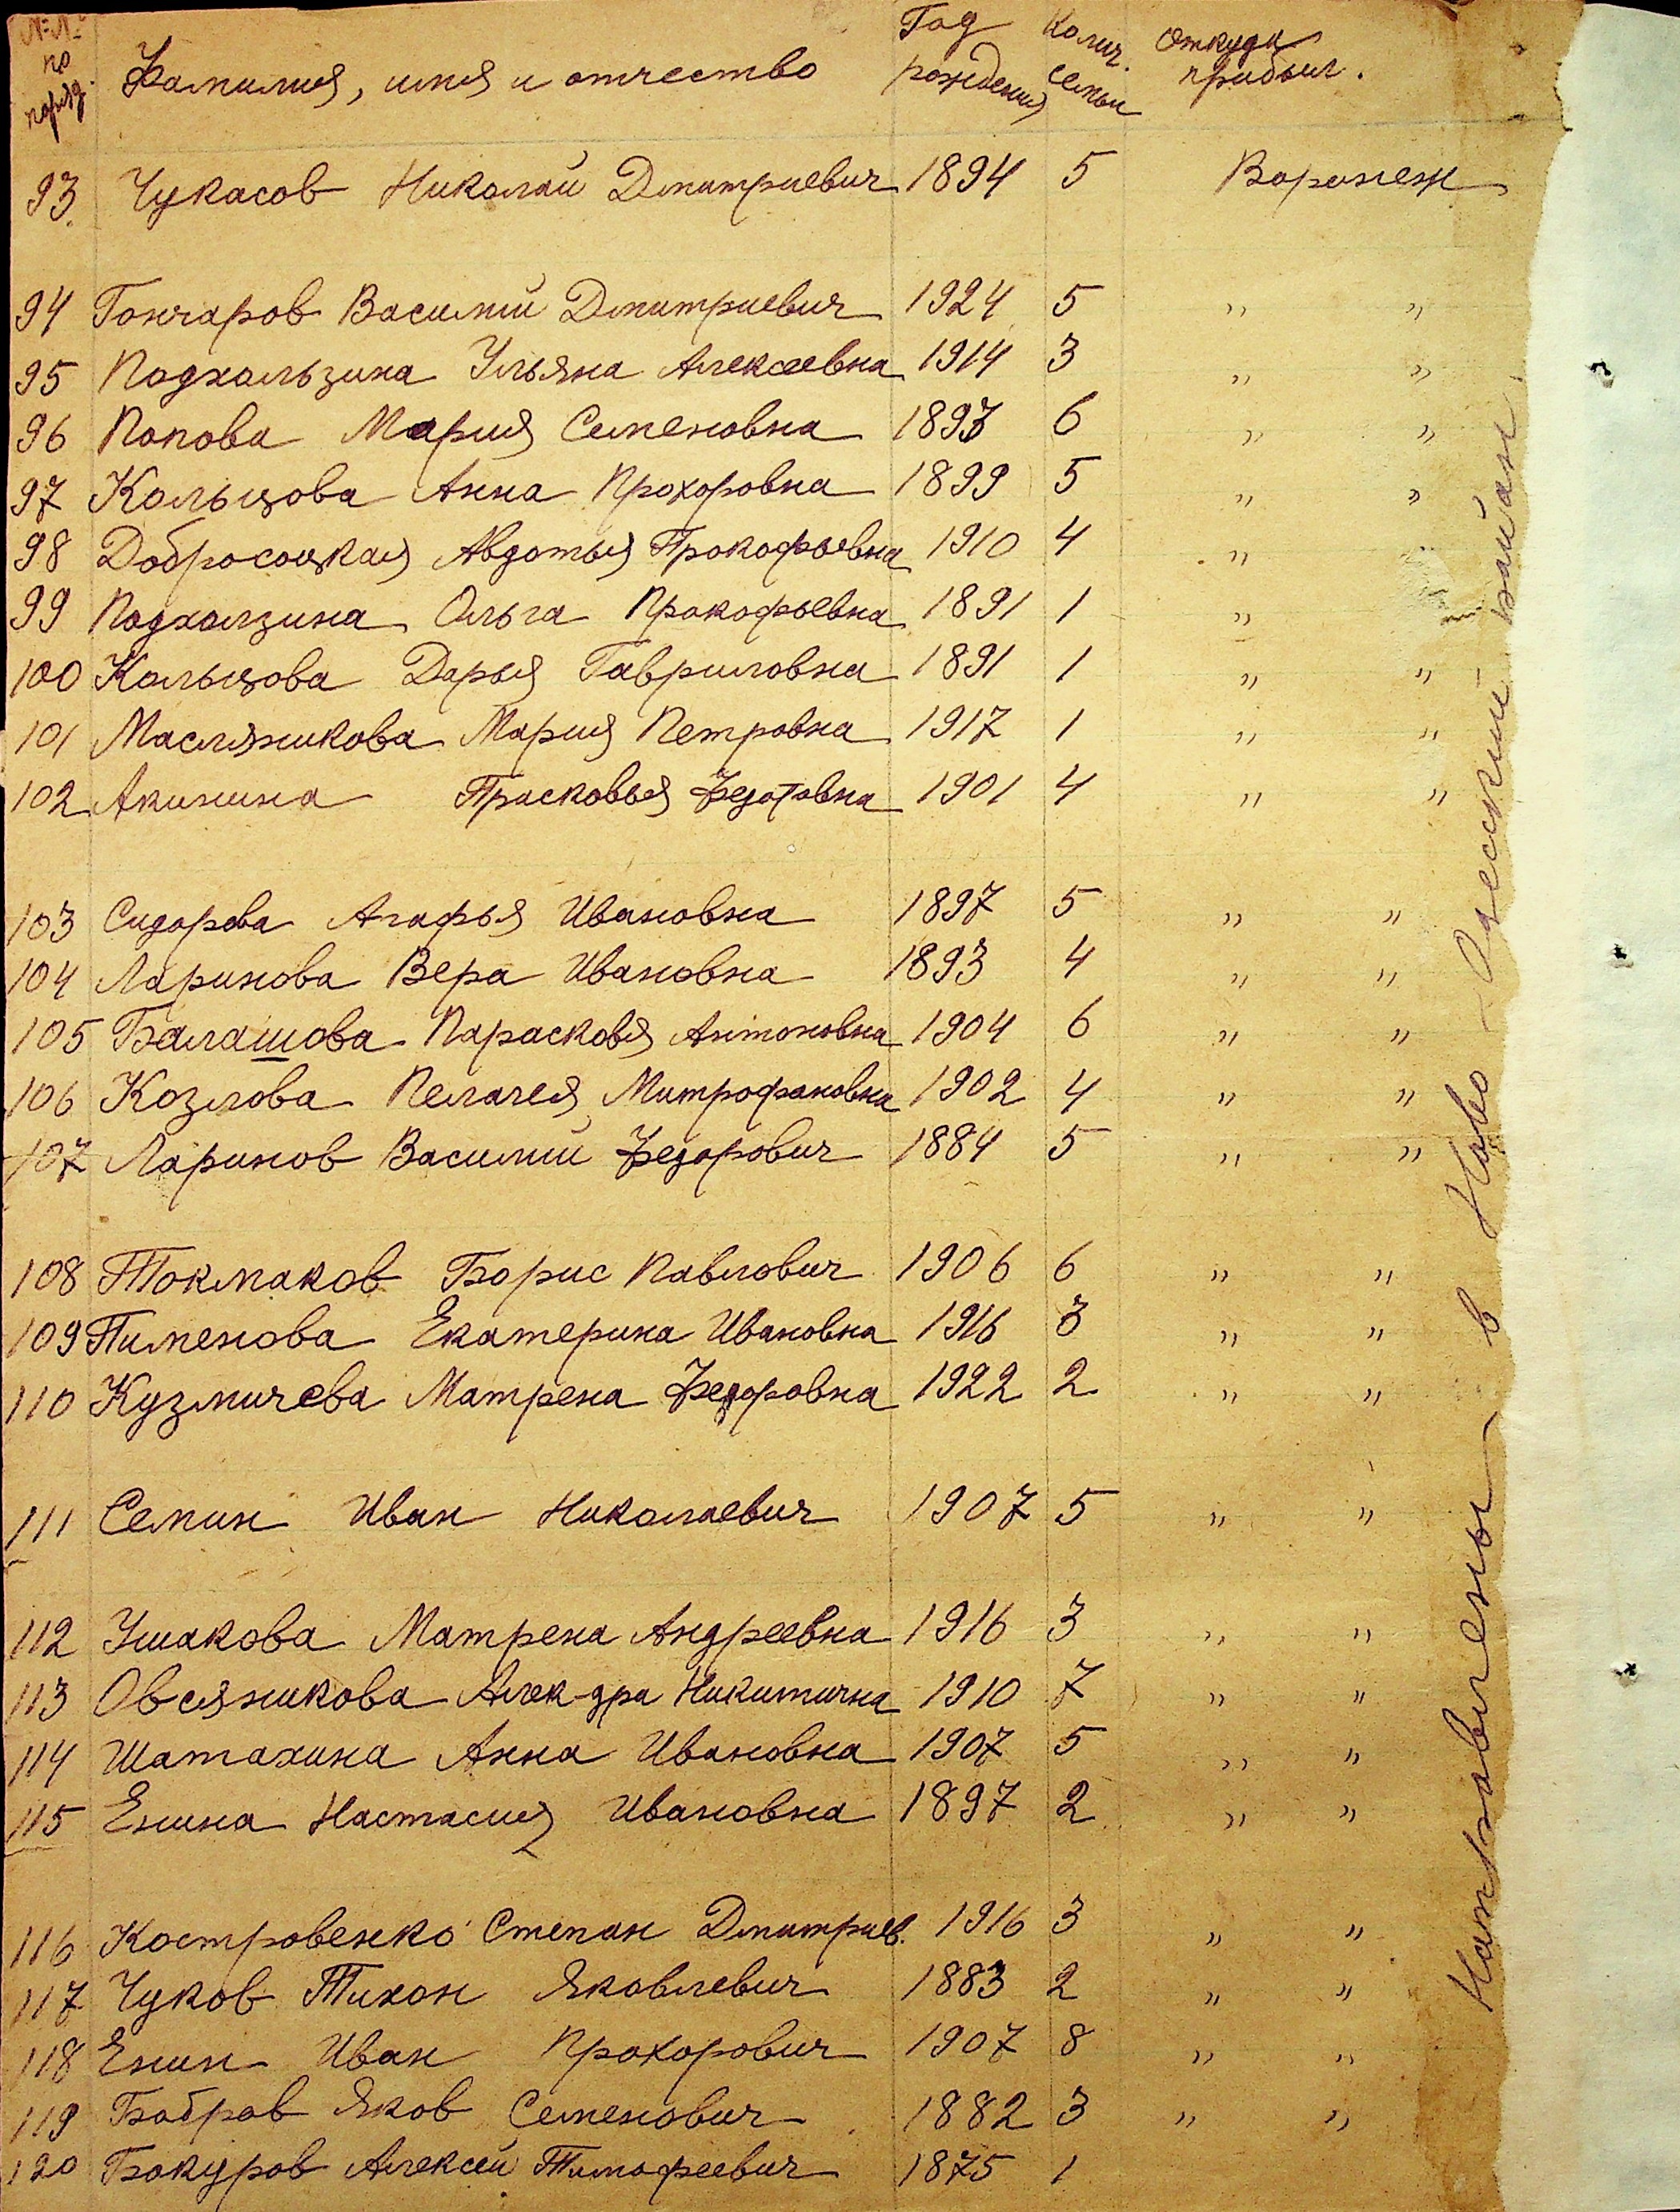 №№ по поряд. Фамилия, имя и отчество Год рождения Колич. семьи Откуда прибыл.
93 Чукасов Николай Дмитриевич 1894 5 Воронеж
94 Гончаров Василий Дмитриевич 1924 5 " "
95 Подхальзина Ульяна Алексеевна 1914 3 " "
96 Попова Мария Семеновна 1893 6 " "
97 Кольцова Анна Прохоровна 1899 5 " "
98 Добросоцкая Авдотья Прокофьевна 1910 4 "
99 Подхалзина Ольга Прокофьевна 1891 1 "
100 Кольцова Дарья Гавриловна 1891 1 " "
101 Масляникова Мария Петровна 1917 1 " "
102 Акинина Прасковья Федотовна 1901 4 " "
103 Сидорова Агафья Ивановна 1897 5 " "
104 Ларинова Вера Ивановна 1893 4 " "
105 Балашова Парасковя Антоновна 1904 6 " "
106 Козлова Пелагея Митрофановна 1902 4 " "
107 Ларинов Василий Федорович 1884 5 " "
108 Токмаков Борис Павлович 1906 6 " "
109 Пименова Екатерина Ивановна 1916 3 " "
110 Кузмичева Матрена Федоровна 1922 2 " "
111 Семин Иван Николаевич 1907 5 " "
112 Ушакова Матрена Андреевна 1916 3 " "
113 Овсяникова Алек-дра Никитична 1910 7 " "
114 Шатахина Анна Ивановна 1907 5 " "
115 Енина Настасия Ивановна 1897 2 " "
116 Костровенко Степан Дмитриев. 1916 3 " "
117 Чуков Тихон Яковлевич 1883 2 " "
118 Енин Иван Прохорович 1907 8 " "
119 Бобров Яков Семенович 1882 3 " "
120 Бокуров Алексей Тимофеевич 1875 1
Направлены в Ново-Одесский район